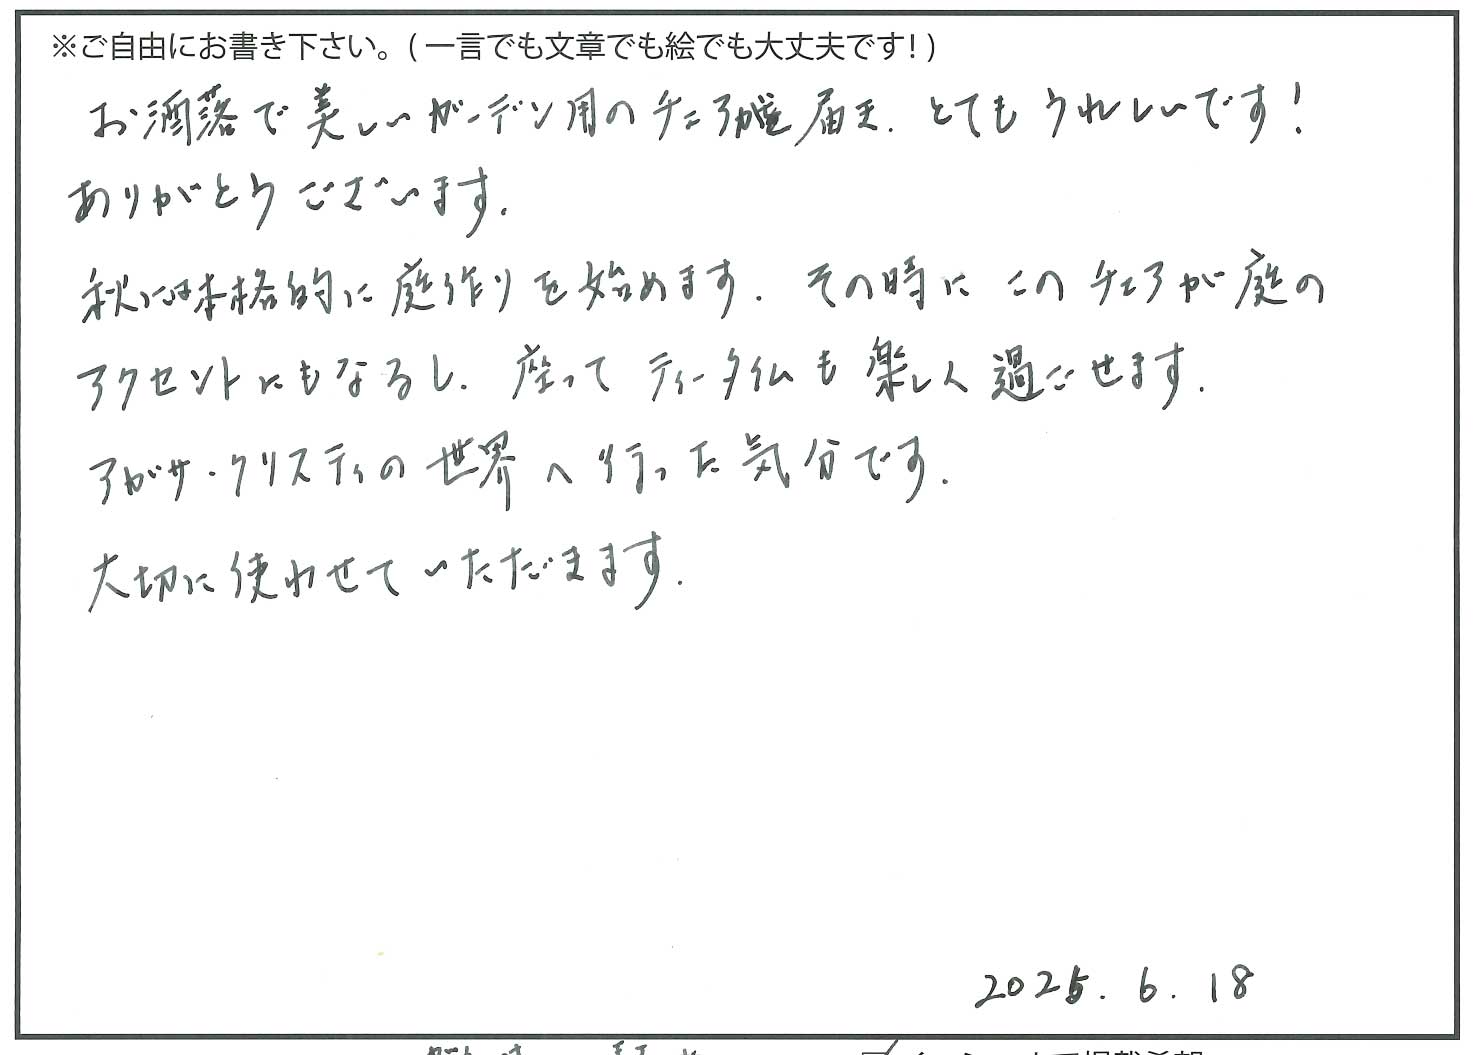 ※ご自由にお書き下さい。(一言でも文章でも絵でも大丈夫です!)
お洒落で美しいガーデン用のチェアが届き、とてもうれしいです!
ありがとうございます。
秋には本格的に庭作りを始めます。その時にこのチェアが庭の
アクセントにもなるし、座ってティータイムも楽しく過ごせます。
アガサ・クリスティの世界へ行った気分です。
大切に使わせていただきます。
2025. 6. 18